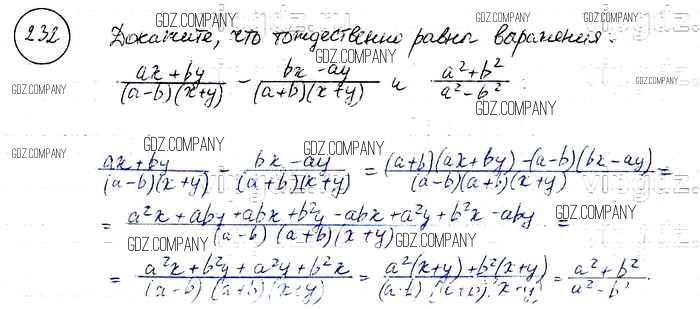 232 Докажите, что тождественно равны выражения:
(ax+by)/((a-b)(x+y)) - (bx-ay)/((a+b)(x+y)) и (a²+b²)/(a²-b²)
(ax+by)/((a-b)(x+y)) - (bx-ay)/((a+b)(x+y)) = ((a+b)(ax+by)-(a-b)(bx-ay))/((a-b)(a+b)(x+y)) =
= (a²x+aby+abx+b²y-abx+a²y+b²x-aby)/((a-b)(a+b)(x+y)) =
= (a²x+b²y+a²y+b²x)/((a-b)(a+b)(x+y)) = (a²(x+y)+b²(x+y))/((a-b)(a+b)(x+y)) = (a²+b²)/(a²-b²)
GDZ.COMPANY
GDZ.COMPANY
GDZ.COMPANY
GDZ.COMPANY
GDZ.COMPANY
GDZ.COMPANY
GDZ.COMPANY
GDZ.COMPANY
GDZ.COMPANY
GDZ.COMPANY
GDZ.COMPANY
GDZ.COMPANY
GDZ.COMPANY
GDZ.COMPANY